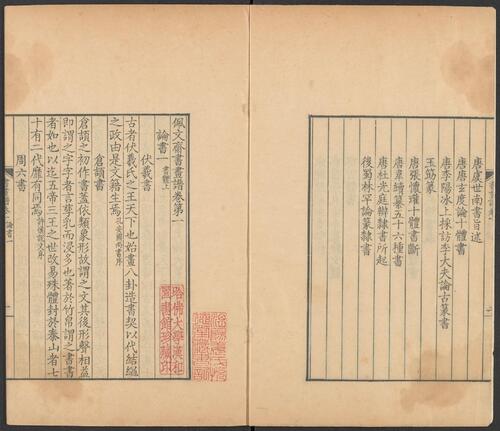 唐虞世南書旨述
唐唐玄度論十體書
唐李陽冰上採訪李大夫論古篆書
玉筯篆
唐張懷瓘十體書斷
唐韋續纂五十六種書
唐杜光庭辯隸書所起
後蜀林罕論篆隸書
佩文齋書畫譜卷第一
論書一 書體上
伏羲書
古者伏羲氏之王天下也始畫八卦造書契以代結繩
之政由是文籍生焉 孔安國尚書序
倉頡書
倉頡之初作書蓋依類象形故謂之文其後形聲相益
即謂之字字者言孳乳而浸多也著於竹帛謂之書書
者如也以迄五帝三王之世改易殊體封於泰山者七
十有二代靡有同焉 許慎說文序
周六書
哈佛大學漢和
圖書館珍藏印